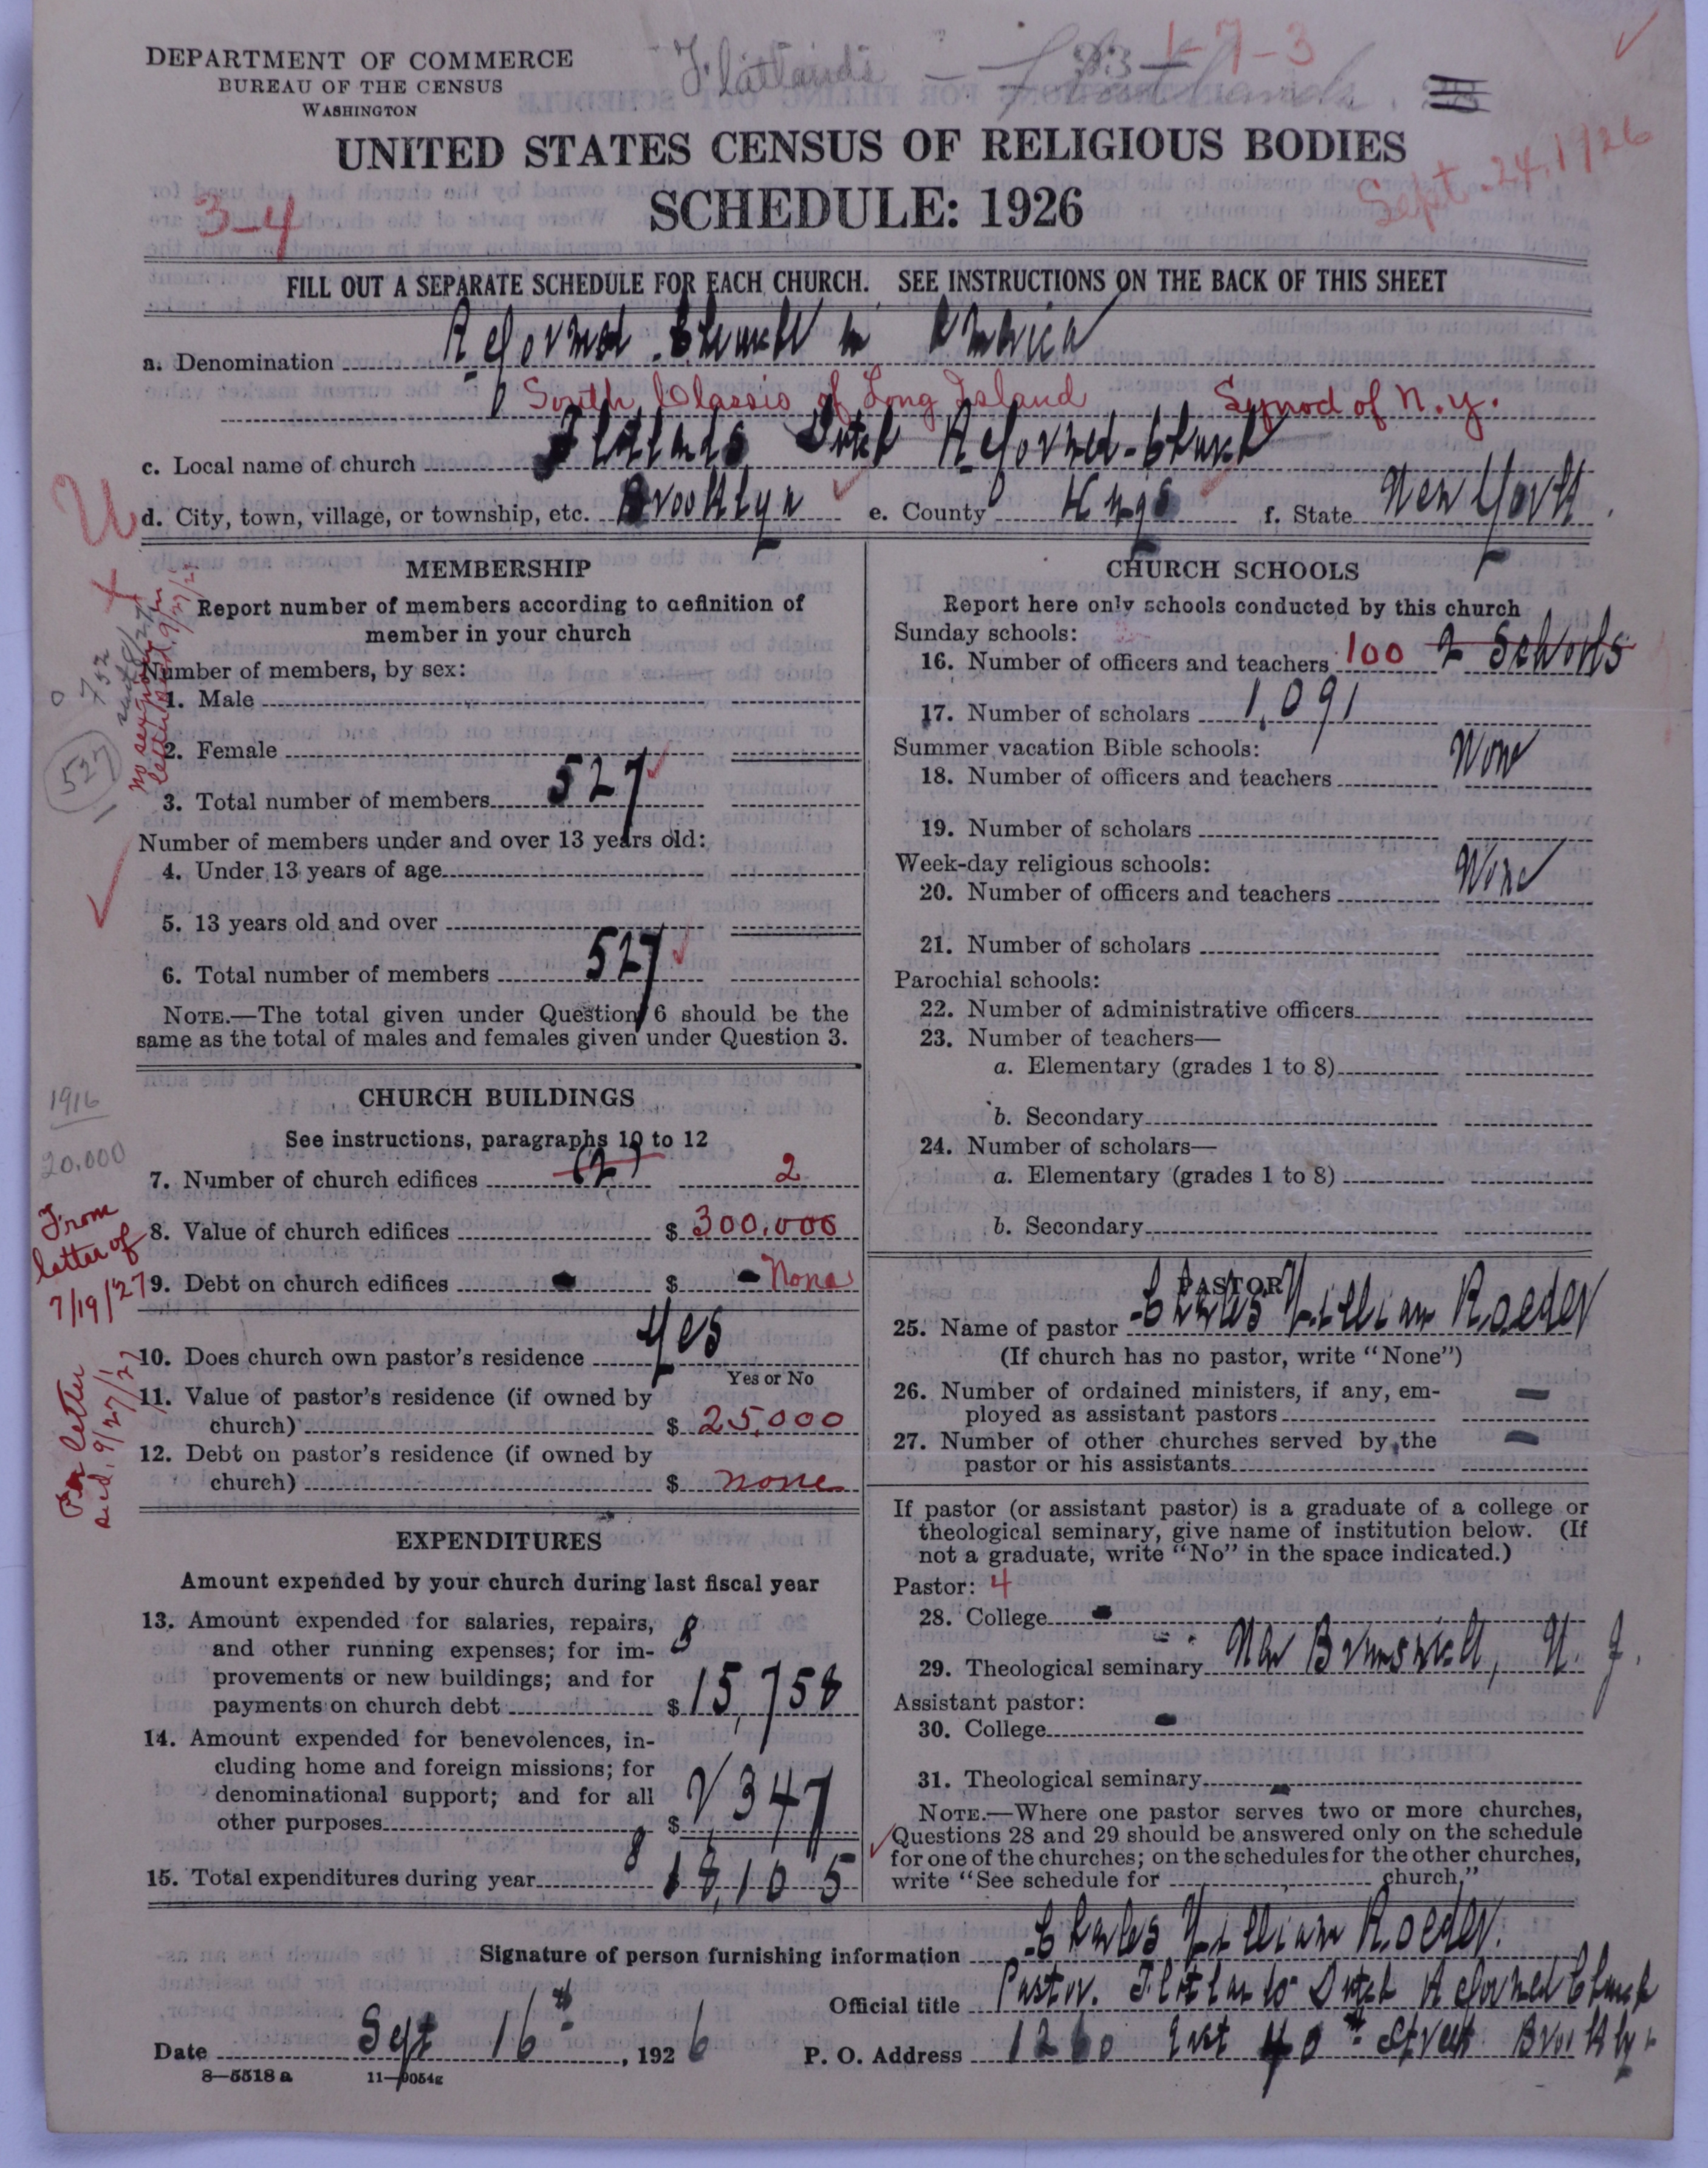 DEPARTMENT OF COMMERCE
BUREAU OF THE CENSUS
WASHINGTON
Flatlands — Flatlands
1-7-3
UNITED STATES CENSUS OF RELIGIOUS BODIES
SCHEDULE: 1926
Sept. 24, 1926
3-4
FILL OUT A SEPARATE SCHEDULE FOR EACH CHURCH. SEE INSTRUCTIONS ON THE BACK OF THIS SHEET
a. Denomination Reformed Church in America
South Classis of Long Island Synod of N.Y.
c. Local name of church Flatlands Dutch Reformed Church
d. City, town, village, or township, etc. Brooklyn e. County Kings f. State New York
MEMBERSHIP
Report number of members according to definition of
member in your church
Number of members, by sex:
1. Male
2. Female
3. Total number of members 527
Number of members under and over 13 years old:
4. Under 13 years of age
5. 13 years old and over
6. Total number of members 527
NOTE.—The total given under Question 6 should be the
same as the total of males and females given under Question 3.
527
1916
20,000
CHURCH BUILDINGS
See instructions, paragraphs 10 to 12
7. Number of church edifices (2) 2
8. Value of church edifices $ 300,000
9. Debt on church edifices - $ - None
From
letter of
7/19/27
10. Does church own pastor's residence Yes
Yes or No
11. Value of pastor's residence (if owned by
church) $ 25,000
12. Debt on pastor's residence (if owned by
church) $ none
letter
9/27/27
EXPENDITURES
Amount expended by your church during last fiscal year
13. Amount expended for salaries, repairs,
and other running expenses; for im-
provements or new buildings; and for
payments on church debt $ 15,758
8
14. Amount expended for benevolences, in-
cluding home and foreign missions; for
denominational support; and for all
other purposes $ 2347
15. Total expenditures during year 8 18,105
CHURCH SCHOOLS
Report here only schools conducted by this church
Sunday schools:
16. Number of officers and teachers 100 2 Schools
17. Number of scholars 1,091
Summer vacation Bible schools:
18. Number of officers and teachers None
19. Number of scholars
Week-day religious schools:
20. Number of officers and teachers None
21. Number of scholars
Parochial schools:
22. Number of administrative officers
23. Number of teachers—
a. Elementary (grades 1 to 8)
b. Secondary
24. Number of scholars—
a. Elementary (grades 1 to 8)
b. Secondary
PASTOR
25. Name of pastor Charles William Roeder
(If church has no pastor, write "None")
26. Number of ordained ministers, if any, em-
ployed as assistant pastors —
27. Number of other churches served by the
pastor or his assistants —
If pastor (or assistant pastor) is a graduate of a college or
theological seminary, give name of institution below. (If
not a graduate, write "No" in the space indicated.)
Pastor: 4
28. College -
29. Theological seminary New Brunswick, N. J.
Assistant pastor:
30. College -
31. Theological seminary -
NOTE.—Where one pastor serves two or more churches,
Questions 28 and 29 should be answered only on the schedule
for one of the churches; on the schedules for the other churches,
write "See schedule for church."
Signature of person furnishing information Charles William Roeder.
Official title Pastor. Flatlands Dutch Reformed Church
Date Sept 16th, 1926 P. O. Address 1260 East 40th Street Brooklyn
8—5518 a 11—9054g